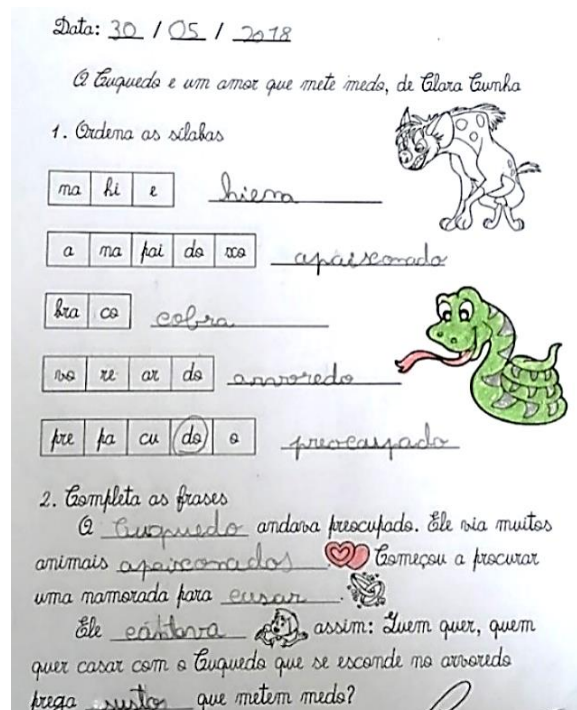 Data: 30 / 05 / 2018
O Cuquedo e um amor que mete medo, de Clara Cunha
1. Ordena as sílabas
na hi e hiena
a na pai do xo apaixonado
bra co cobra
vo re ar do arvoredo
pre pa cu do o preocupado
2. Completa as frases
O Cuquedo andava preocupado. Ele via muitos
animais apaixonados. Começou a procurar
uma namorada para casar.
Ele cantava assim: Quem quer, quem
quer casar com o Cuquedo que se esconde no arvoredo
prega sustos que metem medo?